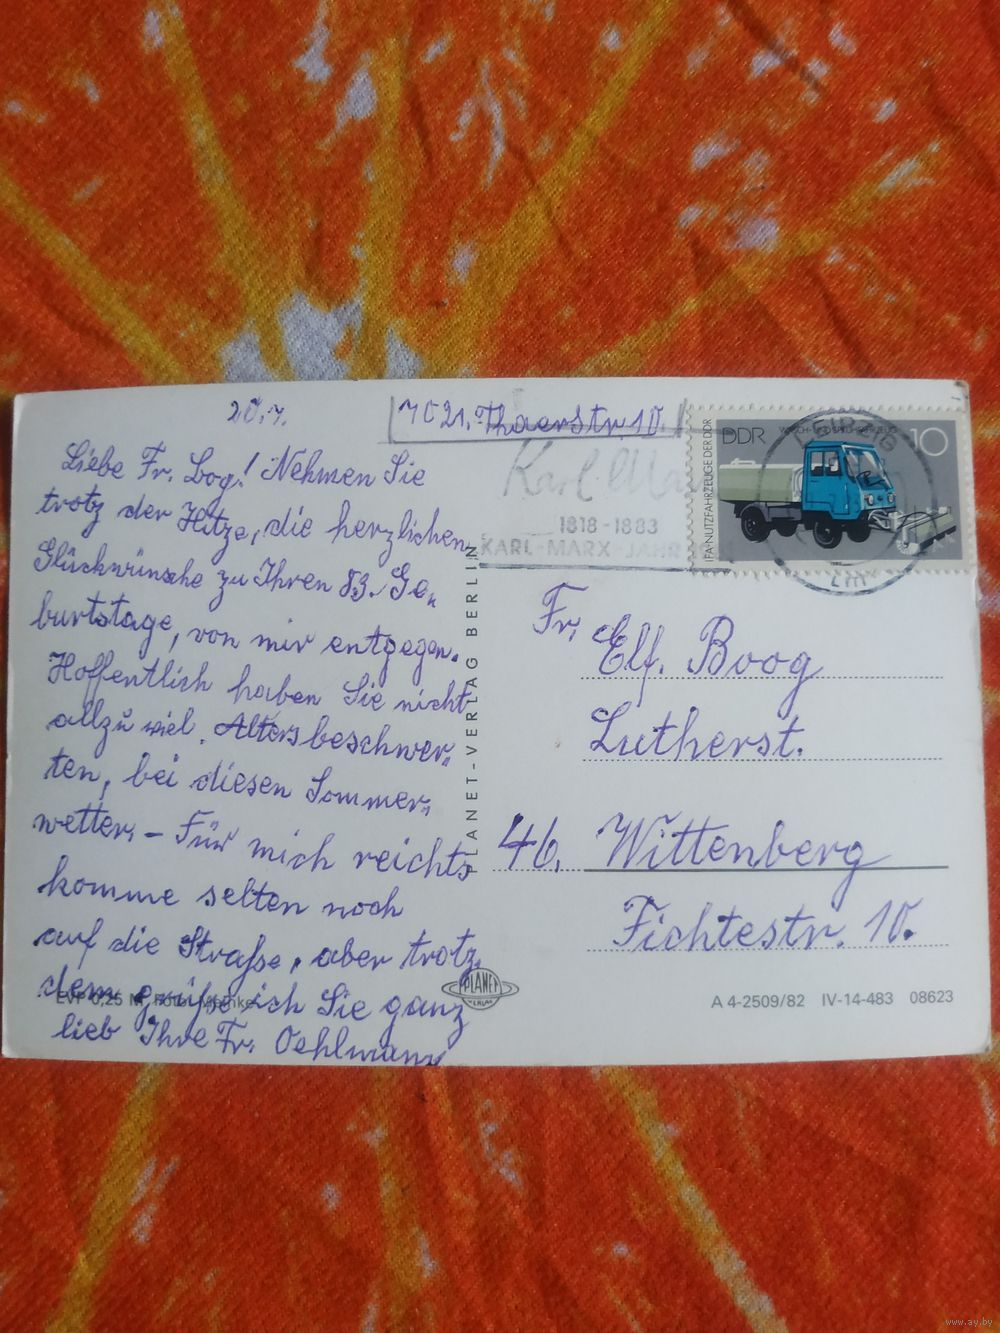 20.7.
7021. Thaerstr. 10.
Liebe Fr. Bog! Nehmen Sie
trotz der Hitze, die herzlichen
Glückwünsche zu Ihren 83. Ge„
burtstage, von mir entgegen.
Hoffentlich haben Sie nicht
allzu viel. Altersbeschwer„
ten, bei diesen Sommer„
wetter. – Für mich reichts
komme selten noch
auf die Straße, aber trotz„
dem grüße ich Sie ganz
lieb Ihre Fr. Oehlmann
EVP 0,25 M, Foto:
PLANET-VERLAG BERLIN
PLANET
VERLAG
Karl Ma
1818-1883
KARL-MARX-JAHR
DDR
10
IFA-NUTZFAHRZEUGE DER DDR
LEIPZIG
Fr. Elf. Boog
Lutherst.
46. Wittenberg
Fichtestr. 10.
A 4-2509/82 IV-14-483 08623
www.ay.by